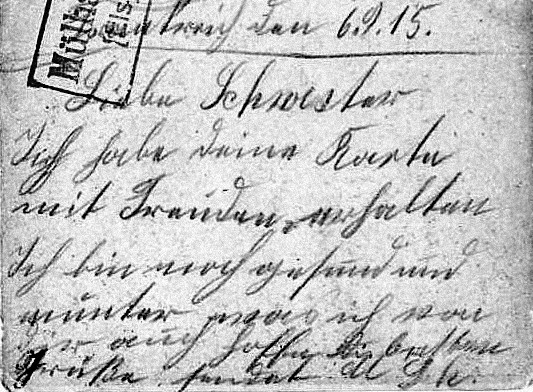 Mülha
(Els
Frankreich den 6.9.15.
Liebe Schwester
Ich habe deine Karte
mit Freuden erhalten
Ich bin noch gesund und
munter was ich von
Dir auch hoffe die besten
Grüße sendet